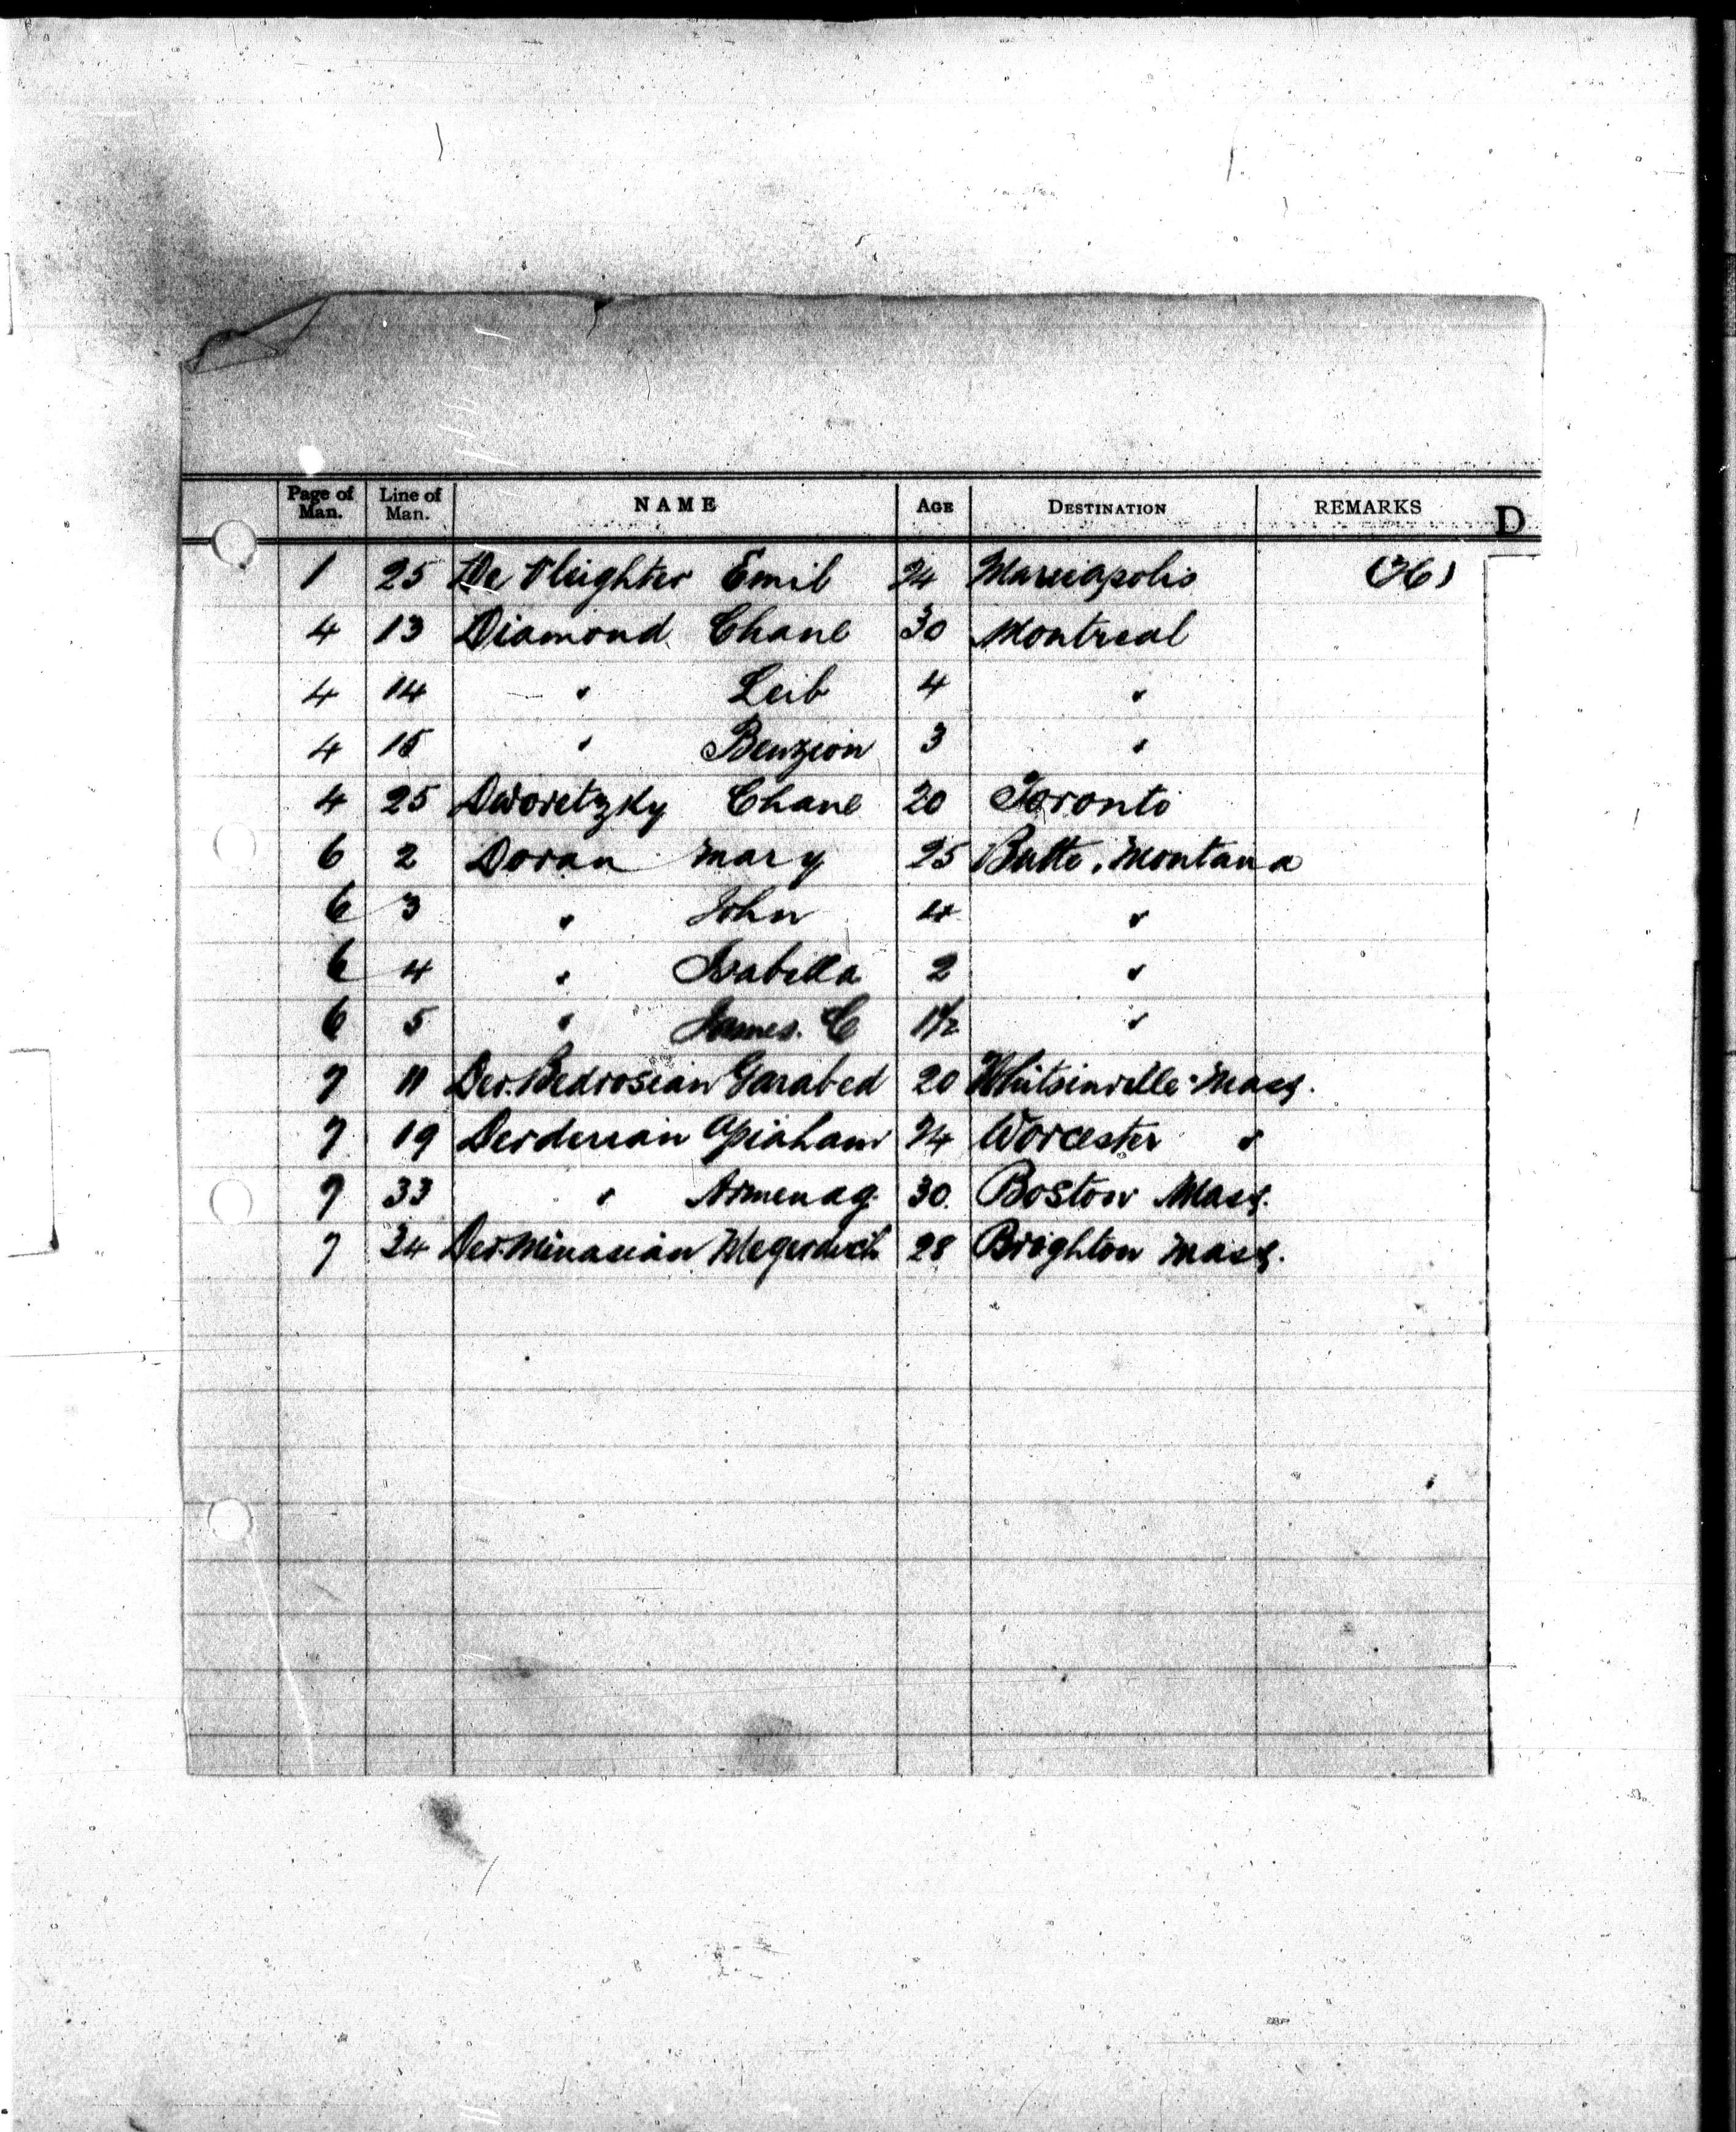 Page of Man. Line of Man. NAME AGE DESTINATION REMARKS D
1 25 De Vleighter Emil 24 Mariapolis (36)
4 13 Diamond Chane 30 Montreal
4 14 " Leib 4 "
4 15 " Benzion 3 "
4 25 Dworetzky Chane 20 Toronto
6 2 Doran Mary 25 Butte, Montana
6 3 " John 4 "
6 4 " Isabella 2 "
6 5 " James. C 1½ "
7 11 Der.Bedrosian Garabed 20 Whitsinville Mass.
7 19 Derderian 24 Worcester "
7 33 " Armenag. 30. Boston Mass.
7 34 Der.Minasian Megerdich 28 Brighton Mass.